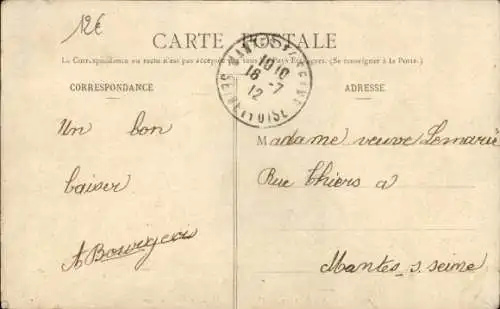 12€
CARTE POSTALE
La Correspondance au recto n'est pas acceptée par tous les Pays Etrangers. (Se renseigner à la Poste.)
CORRESPONDANCE
ADRESSE
MANTES-S-SEINE
10 10
18 -7
12
SEINE-ET-OISE
Un bon
baiser
A Bourgeau
Madame veuve Lemarié
Rue Thiers a
Mantes s. seine